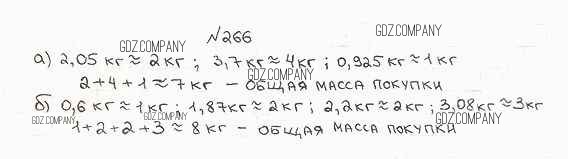 №266
GDZ.COMPANY
GDZ.COMPANY
а) 2,05 кг ≈ 2 кг ; 3,7 кг ≈ 4 кг ; 0,925 кг ≈ 1 кг
GDZ.COMPANY
2 + 4 + 1 ≈ 7 кг – общая масса покупки
б) 0,6 кг ≈ 1 кг ; 1,87 кг ≈ 2 кг ; 2,2 кг ≈ 2 кг ; 3,08 кг ≈ 3 кг
GDZ.COMPANY GDZ.COMPANY GDZ.COMPANY
1 + 2 + 2 + 3 ≈ 8 кг – общая масса покупки